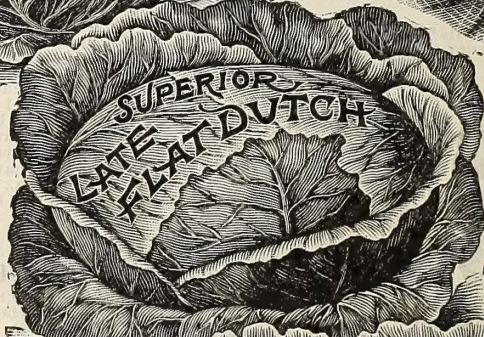 SUPERIOR
LATE
FLAT DUTCH